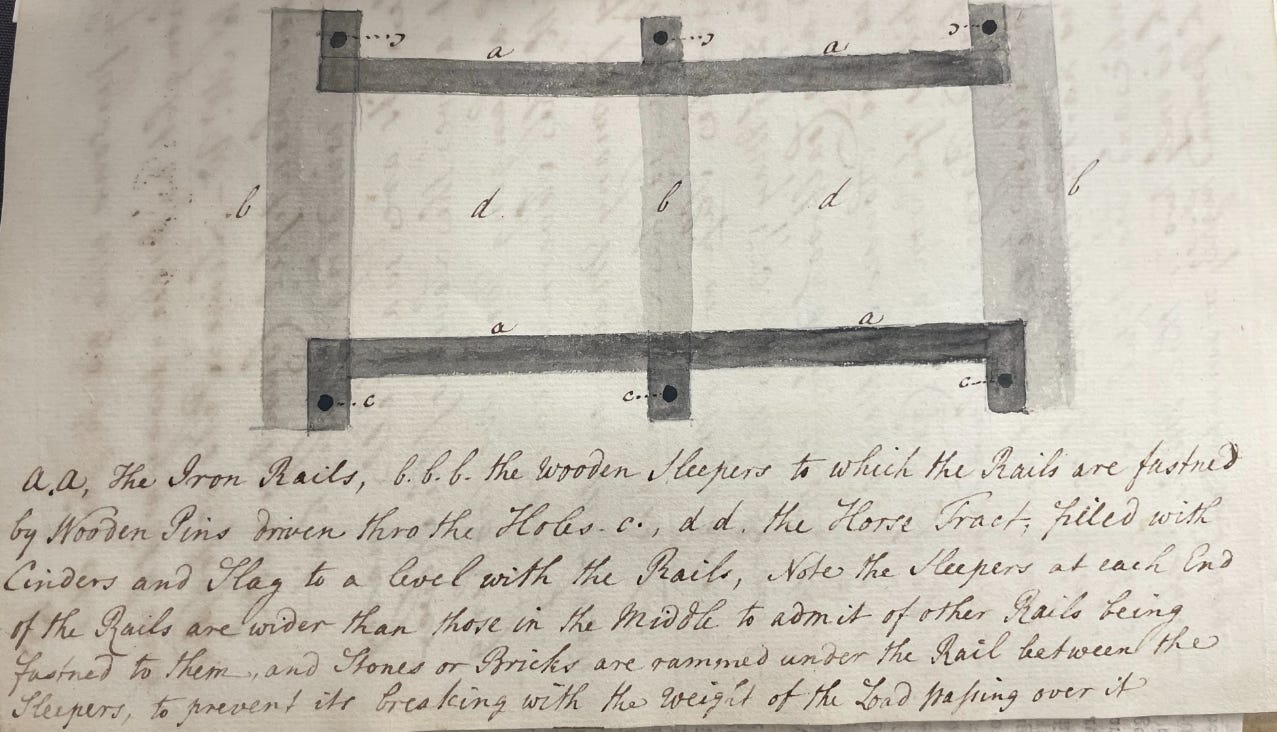 c c c
a a
b d b d b
a a
c c c
a.a, the Iron Rails, b.b.b. the Wooden Sleepers to which the Rails are fastned
by Wooden Pins driven thro the Holes c., d d. the Horse Tract, filled with
Cinders and Slag to a level with the Rails, Note the Sleepers at each End
of the Rails are wider than those in the Middle to admit of other Rails being
fastned to them, and Stones or Bricks are rammed under the Rail between the
Sleepers, to prevent its breaking with the Weight of the Load passing over it